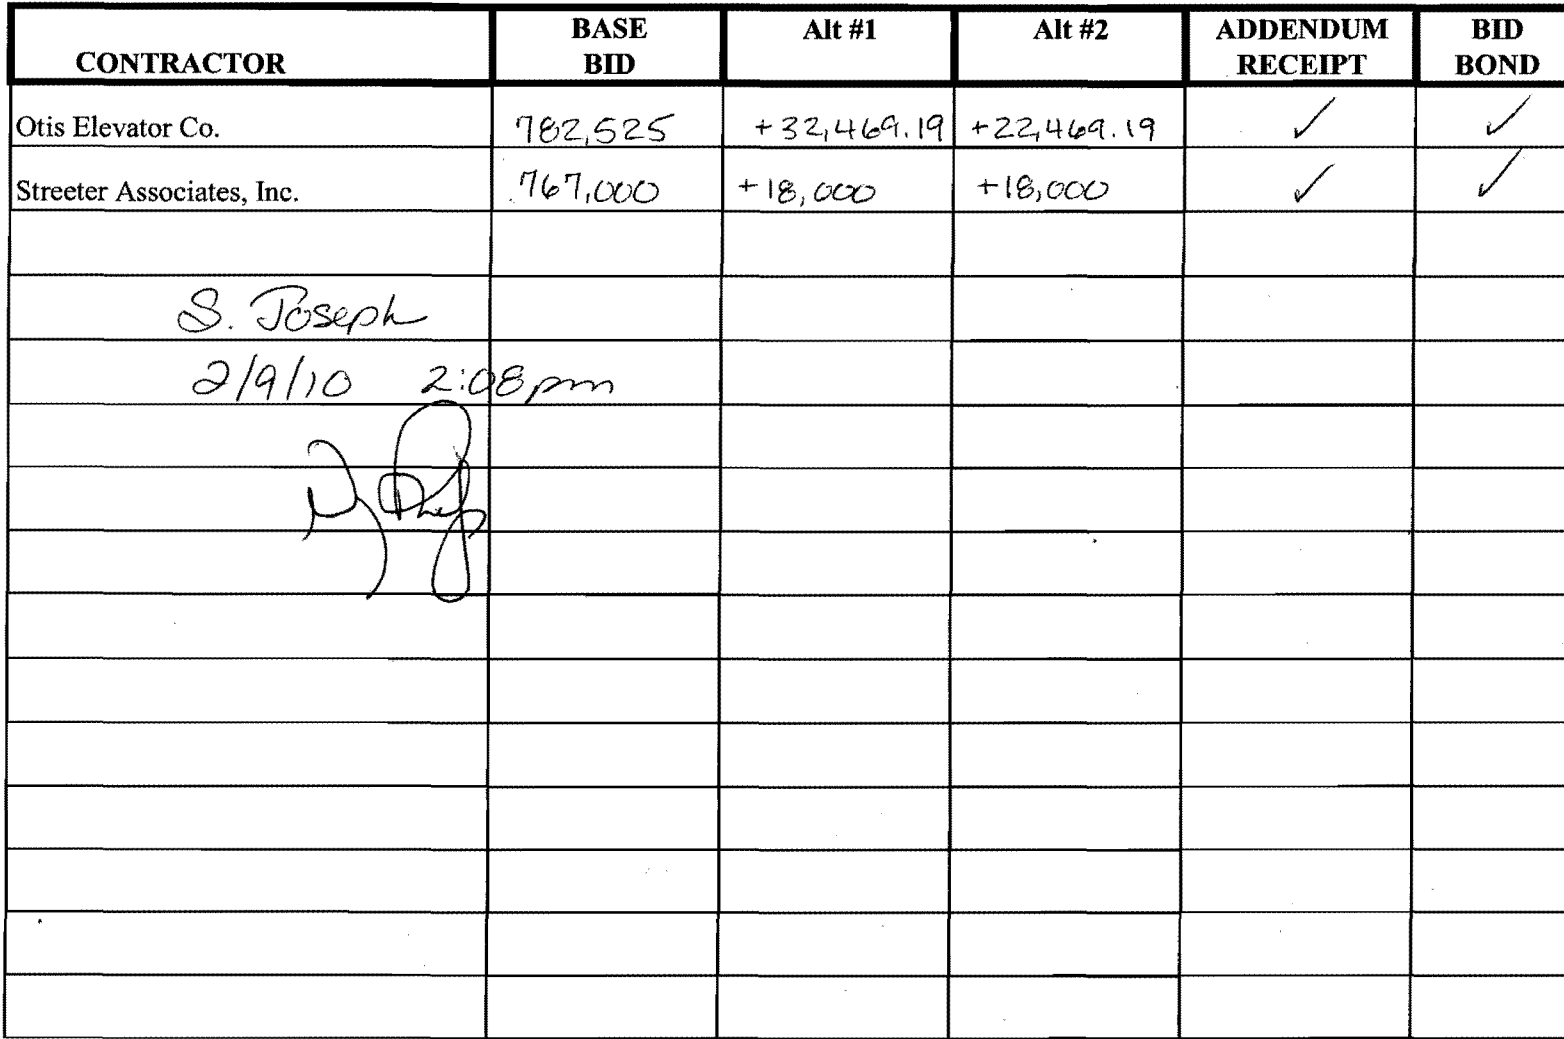 CONTRACTOR BASE BID Alt #1 Alt #2 ADDENDUM RECEIPT BID BOND
Otis Elevator Co. 782,525 +32,469.19 +22,469.19 ✓ ✓
Streeter Associates, Inc. 767,000 +18,000 +18,000 ✓ ✓
S. Joseph
2/9/10 2:08pm